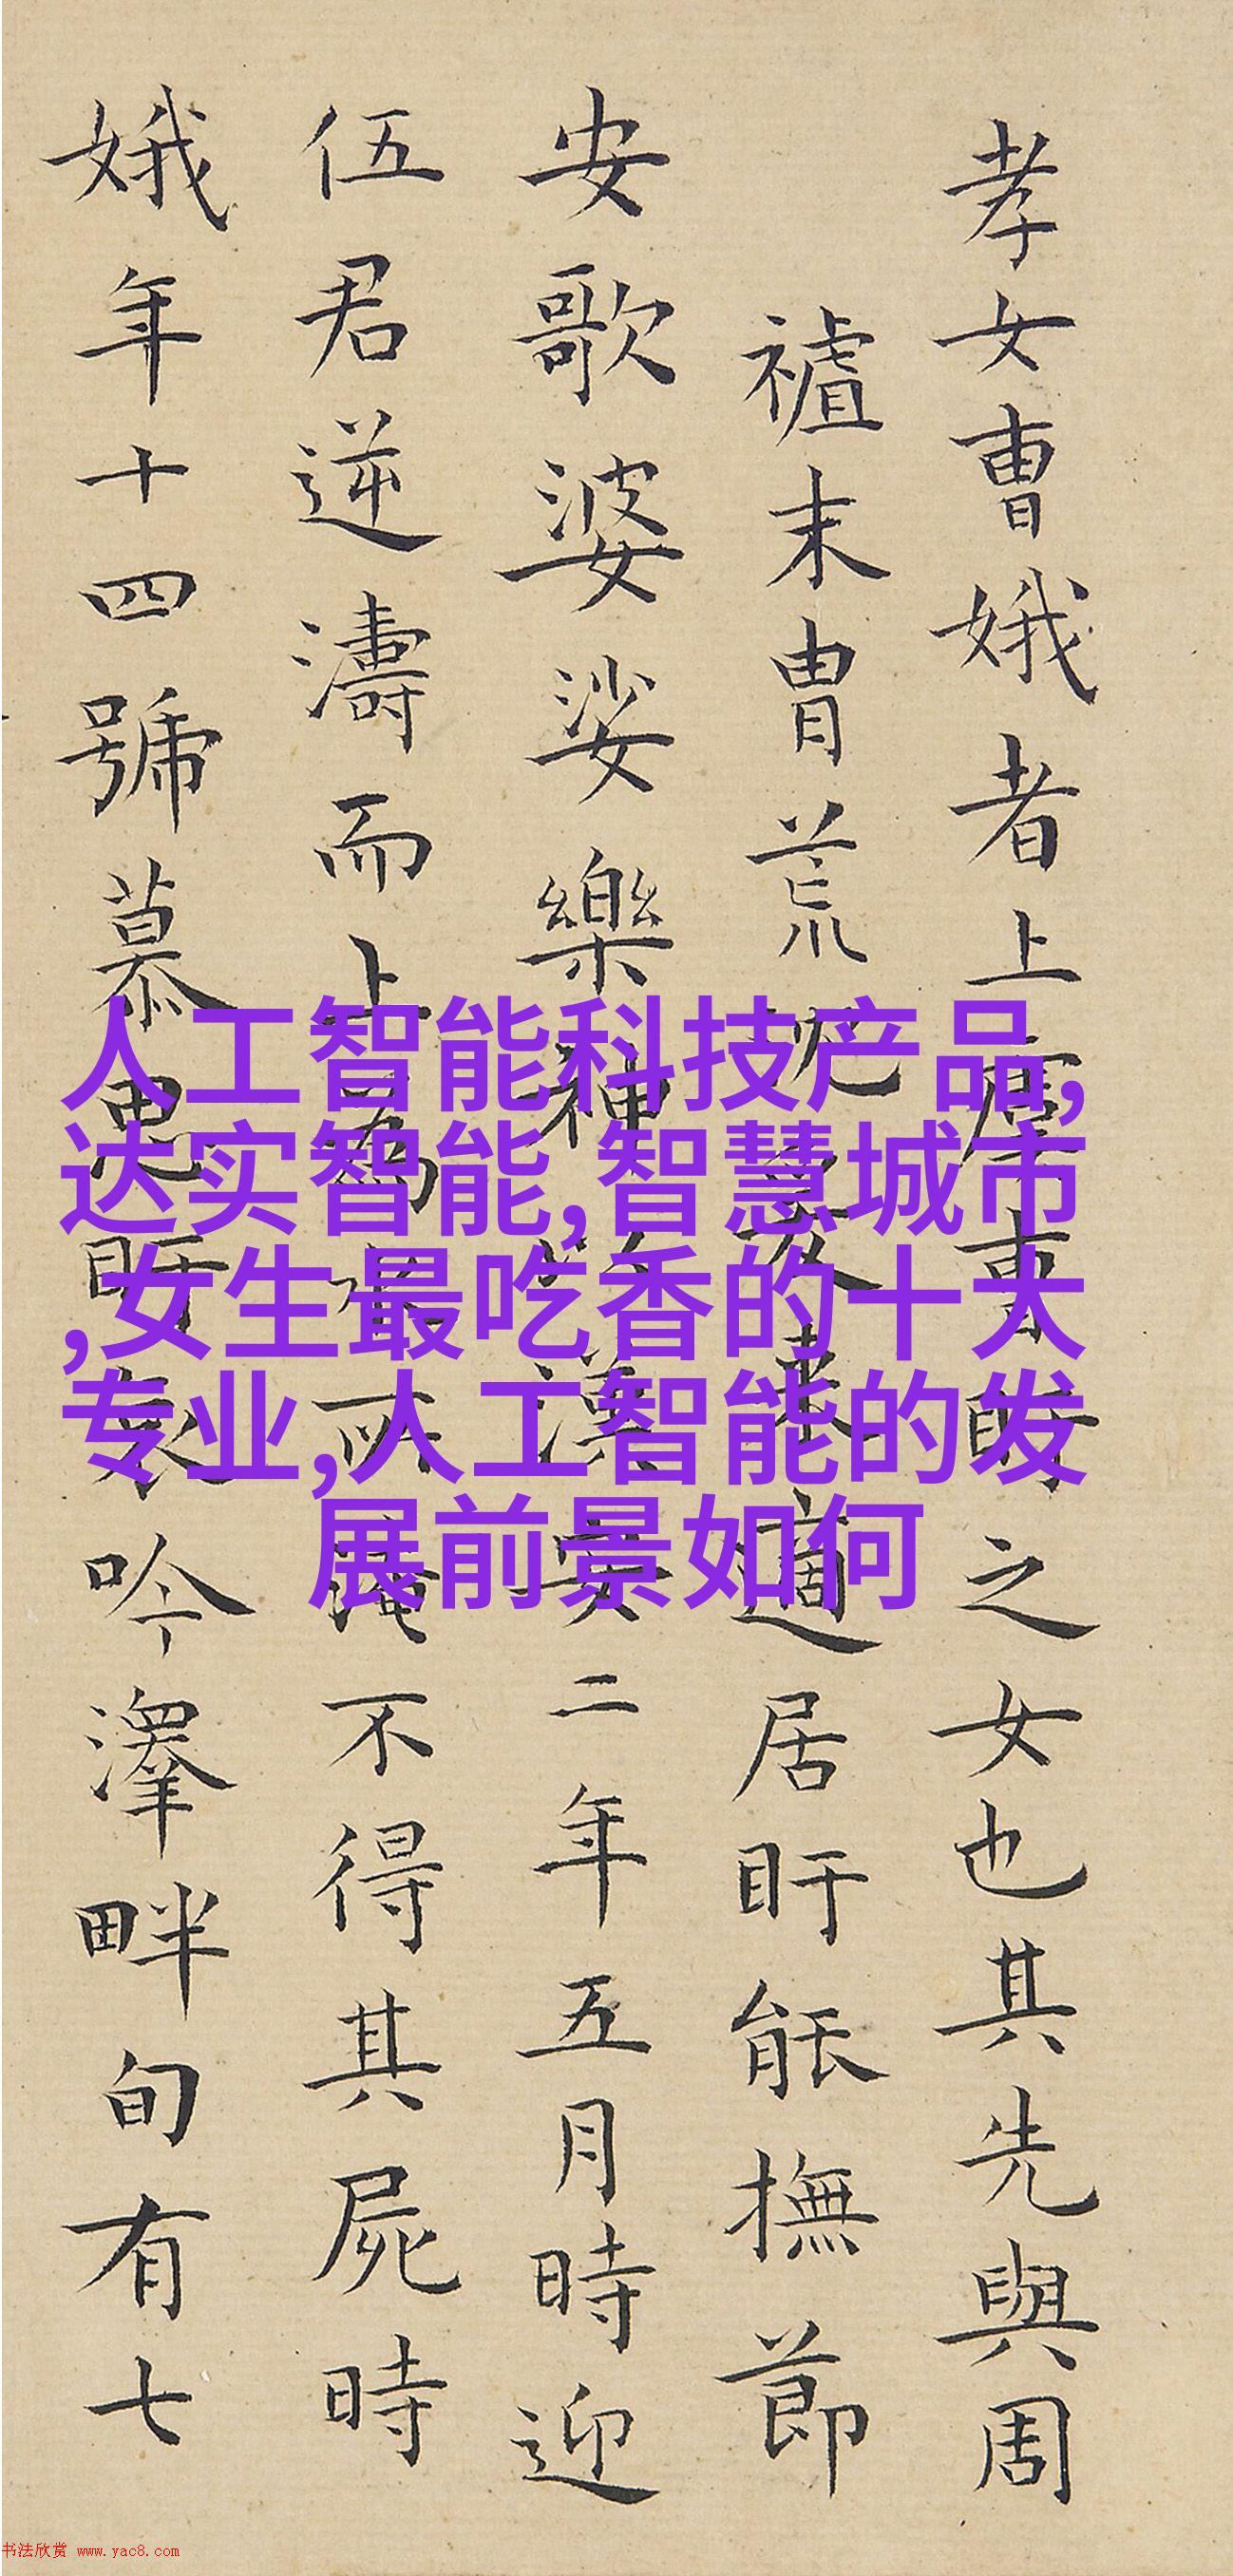 孝女曹娥者上虞曹盱之女也其先與周
末冑荒沉爰来適居盱能撫節
安歌婆娑樂神漢安二年五月時迎
伍君逆濤而上為水所淹不得其屍時
娥年十四號慕思盱哀吟澤畔旬有七
人工智能科技产品,
达实智能,智慧城市
,女生最吃香的十大
专业,人工智能的发
展前景如何
书法欣赏 www.yac8.com